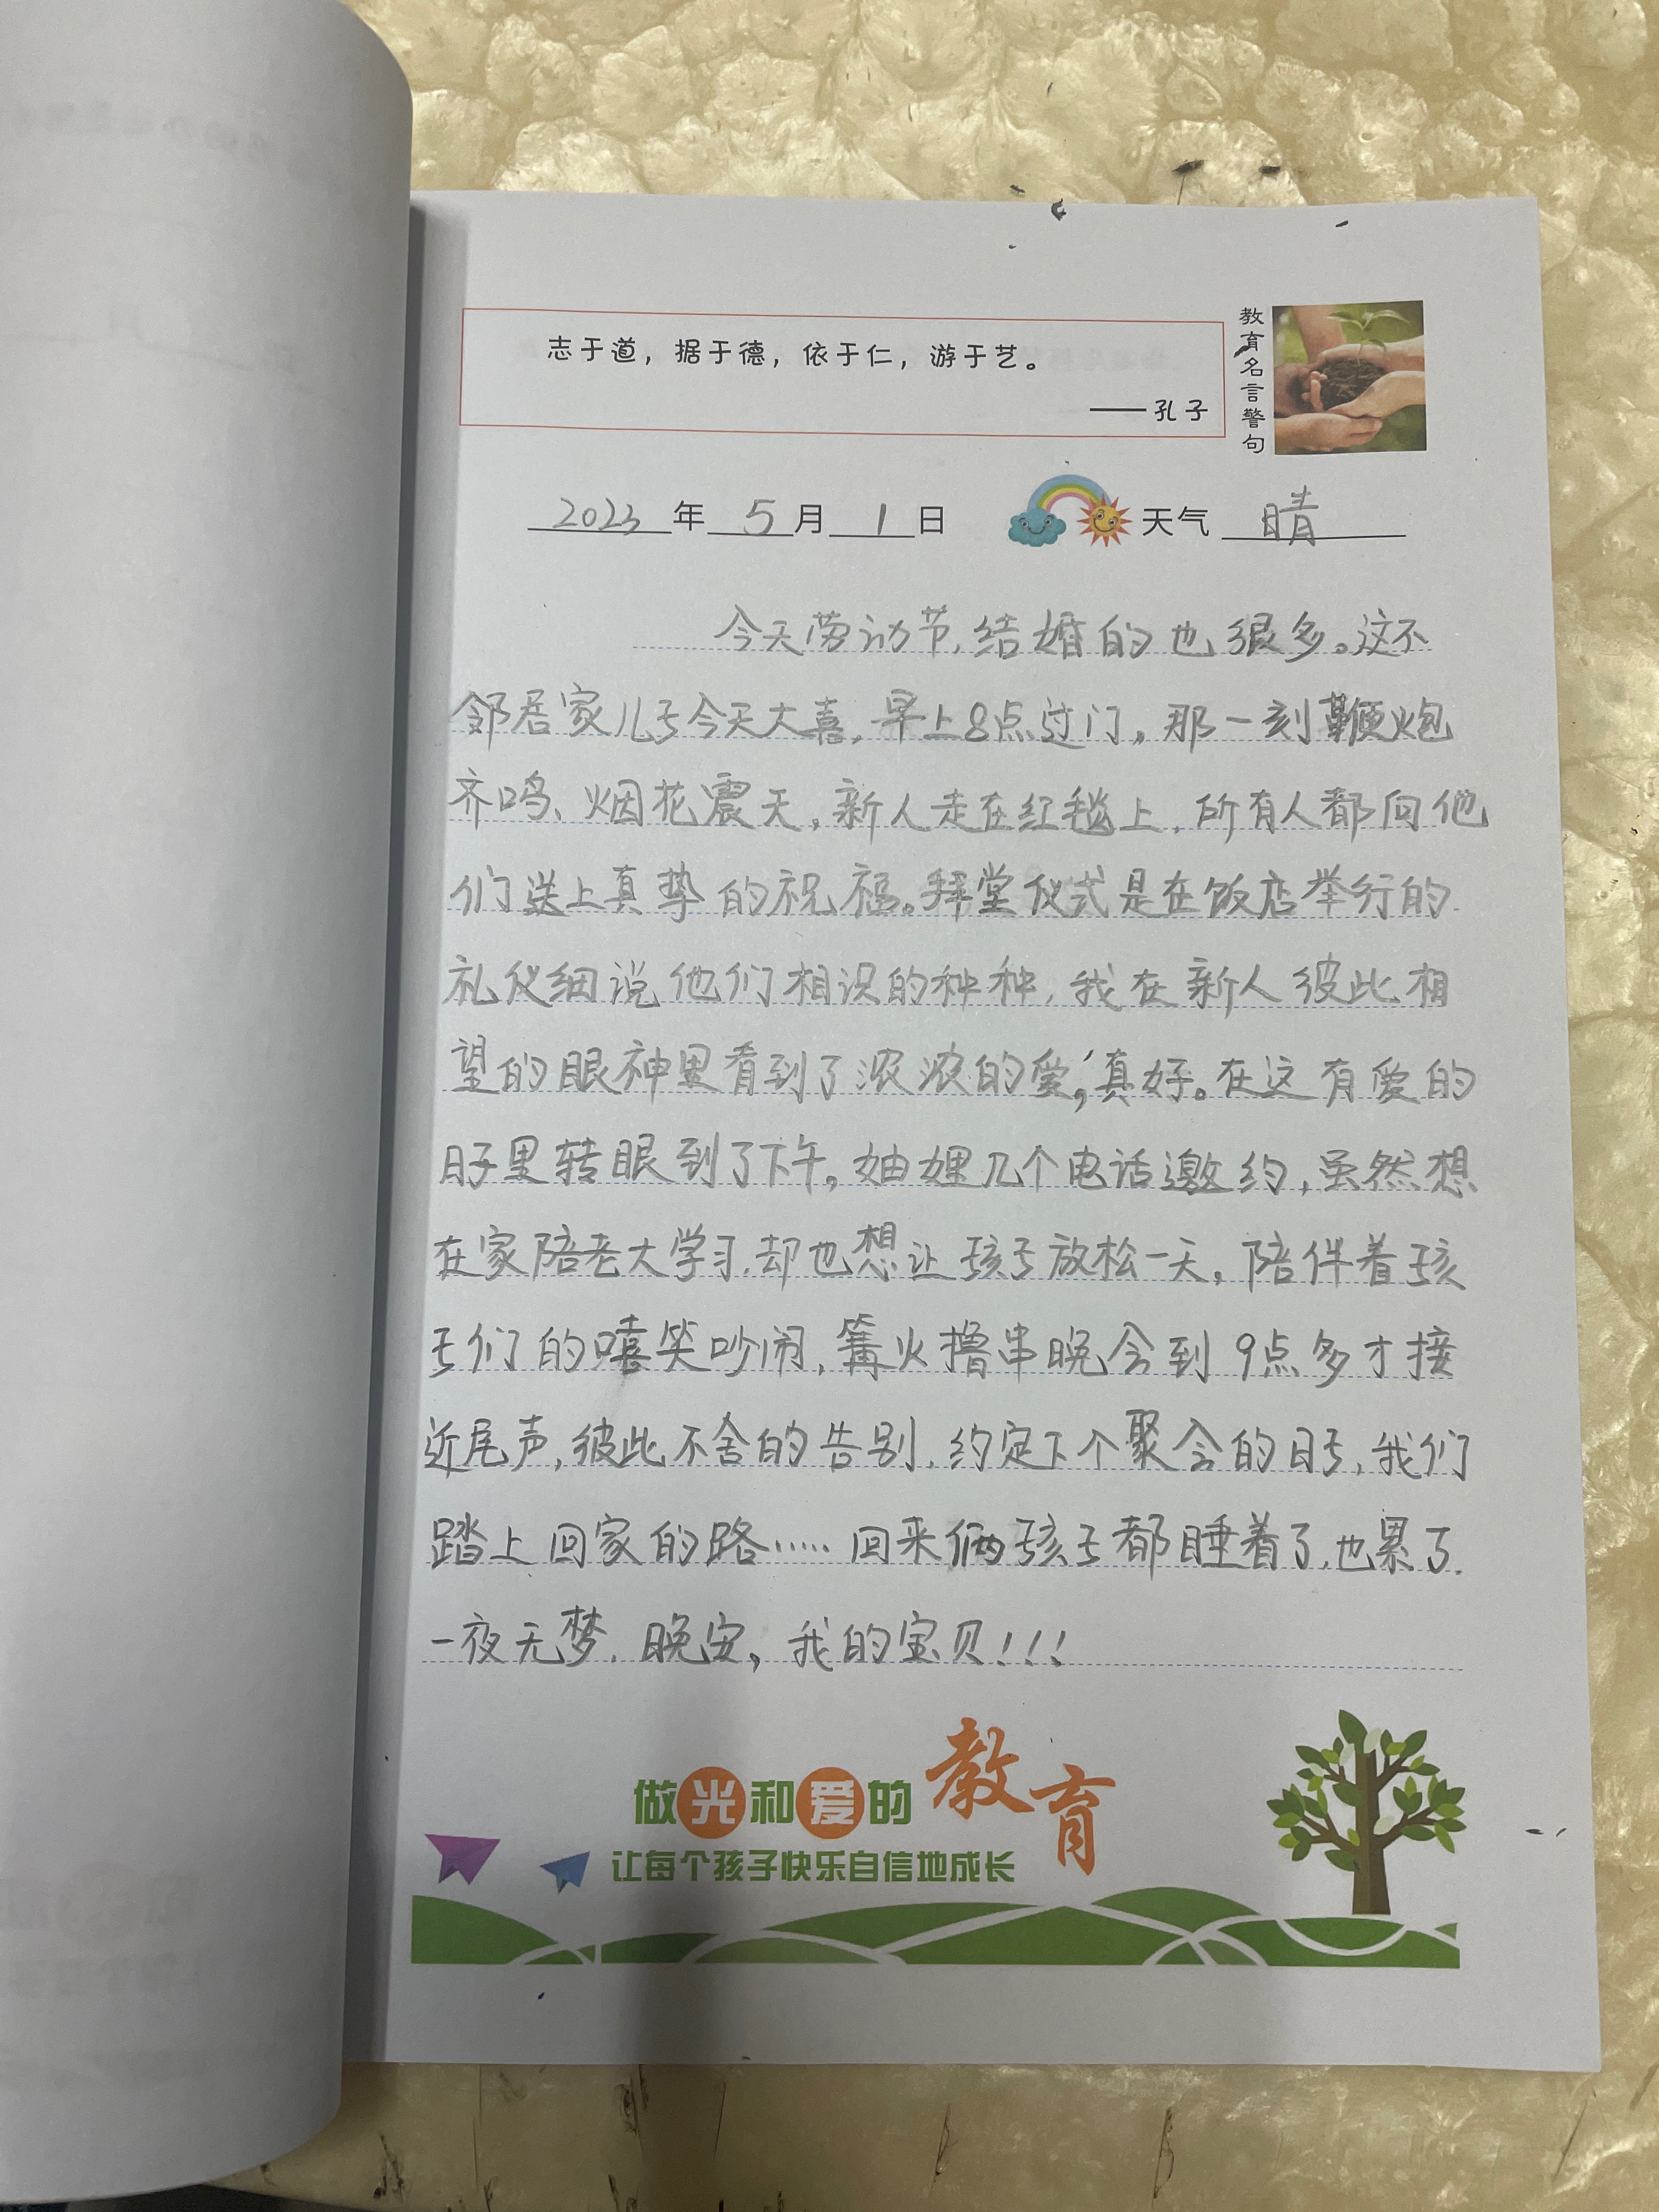 志于道，据于德，依于仁，游于艺。
——孔子
教育名言警句
2023年5月1日 天气 晴
今天劳动节，结婚的也很多。这不
邻居家儿子今天大喜，早上8点过门，那一刻鞭炮
齐鸣、烟花震天，新人走在红毯上，所有人都向他
们送上真挚的祝福。拜堂仪式是在饭店举行的
礼仪细说他们相识的种种，我在新人彼此相
望的眼神里看到了浓浓的爱，真好。在这有爱的
日子里转眼到了下午。妯娌几个电话邀约，虽然想
在家陪老大学习，却也想让孩子放松一天，陪伴着孩
子们的嘻笑吵闹，篝火撸串晚会到9点多才接
近尾声，彼此不舍的告别，约定下个聚会的日子，我们
踏上回家的路……回来俩孩子都睡着了，也累了．
一夜无梦．晚安，我的宝贝！！！
做光和爱的教育
让每个孩子快乐自信地成长